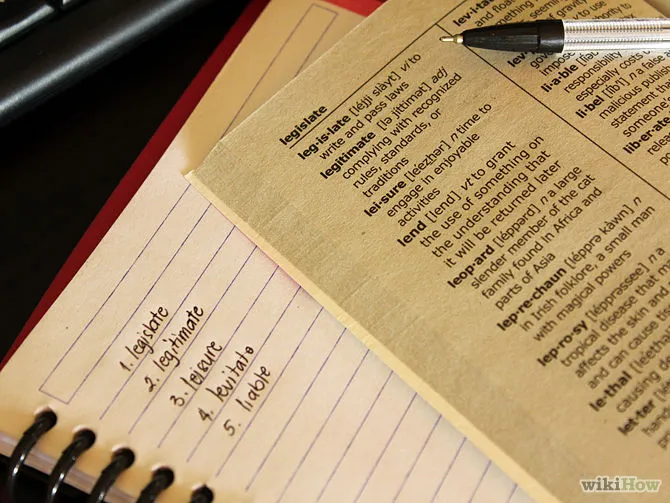 legislate
leg·is·late [léjji slàyt] vi to
write and pass laws
legitimate [lə jíttimət] adj
complying with recognized
rules, standards, or
traditions
lei·sure [leézhər] n time to
engage in enjoyable
activities
lend [lend] vt to grant
the use of something on
the understanding that
it will be returned later
leop·ard [léppərd] n a large
slender member of the cat
family found in Africa and
parts of Asia
lep·re·chaun [léprə kàwn] n
in Irish folklore, a small man
with magical powers
lep·ro·sy [lépprəssee] n a
tropical disease that
affects the skin and
and can cause
le·thal
causing
let·ter
lev·i·tate
and float
something
li·a·ble
responsibility
especially costs
li·bel [líb'l] n a false
malicious public
statement that
someone
lib·er·ate
1. legislate
2. legitimate
3. leisure
4. levitate
5. liable
wikiHow